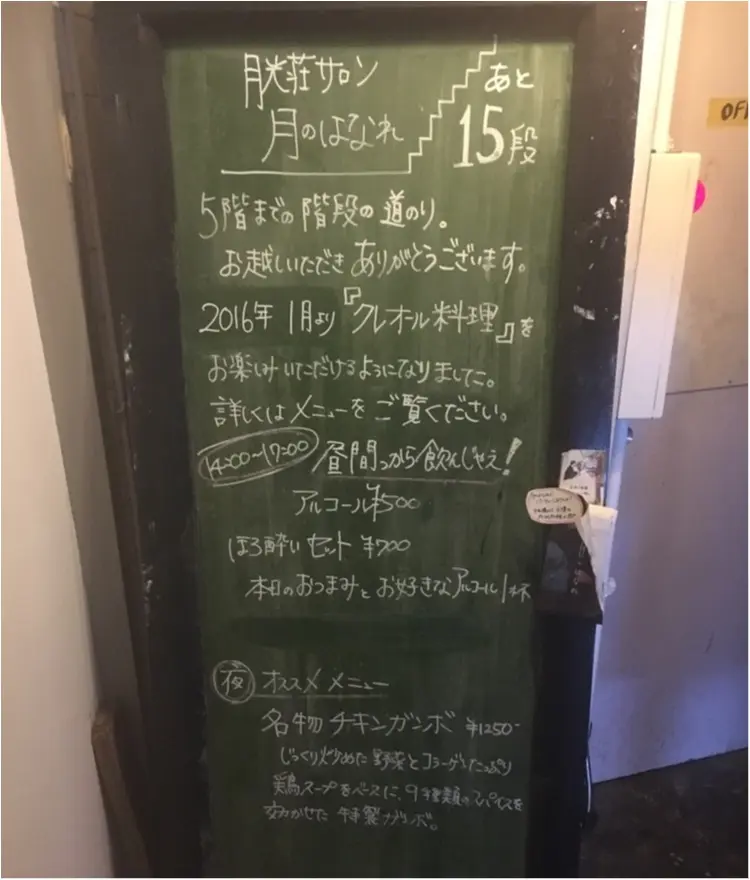 月光荘サロン
月のはなれ
あと
15段
5階までの階段の道のり。
お越しいただきありがとうございます。
2016年 1月より『クレオール料理』を
お楽しみいただけるようになりました。
詳しくはメニューをご覧ください。
14:00～17:00 昼間っから飲んじゃえ!
アルコール¥500
ほろ酔いセット ¥700
本日のおつまみとお好きなアルコール1杯
夜 オススメメニュー
名物チキンガンボ ¥1250-
じっくり炒めた野菜とコラーゲンたっぷり
鶏スープをベースに、9種類のスパイスを
効かせた特製ガンボ。
OF